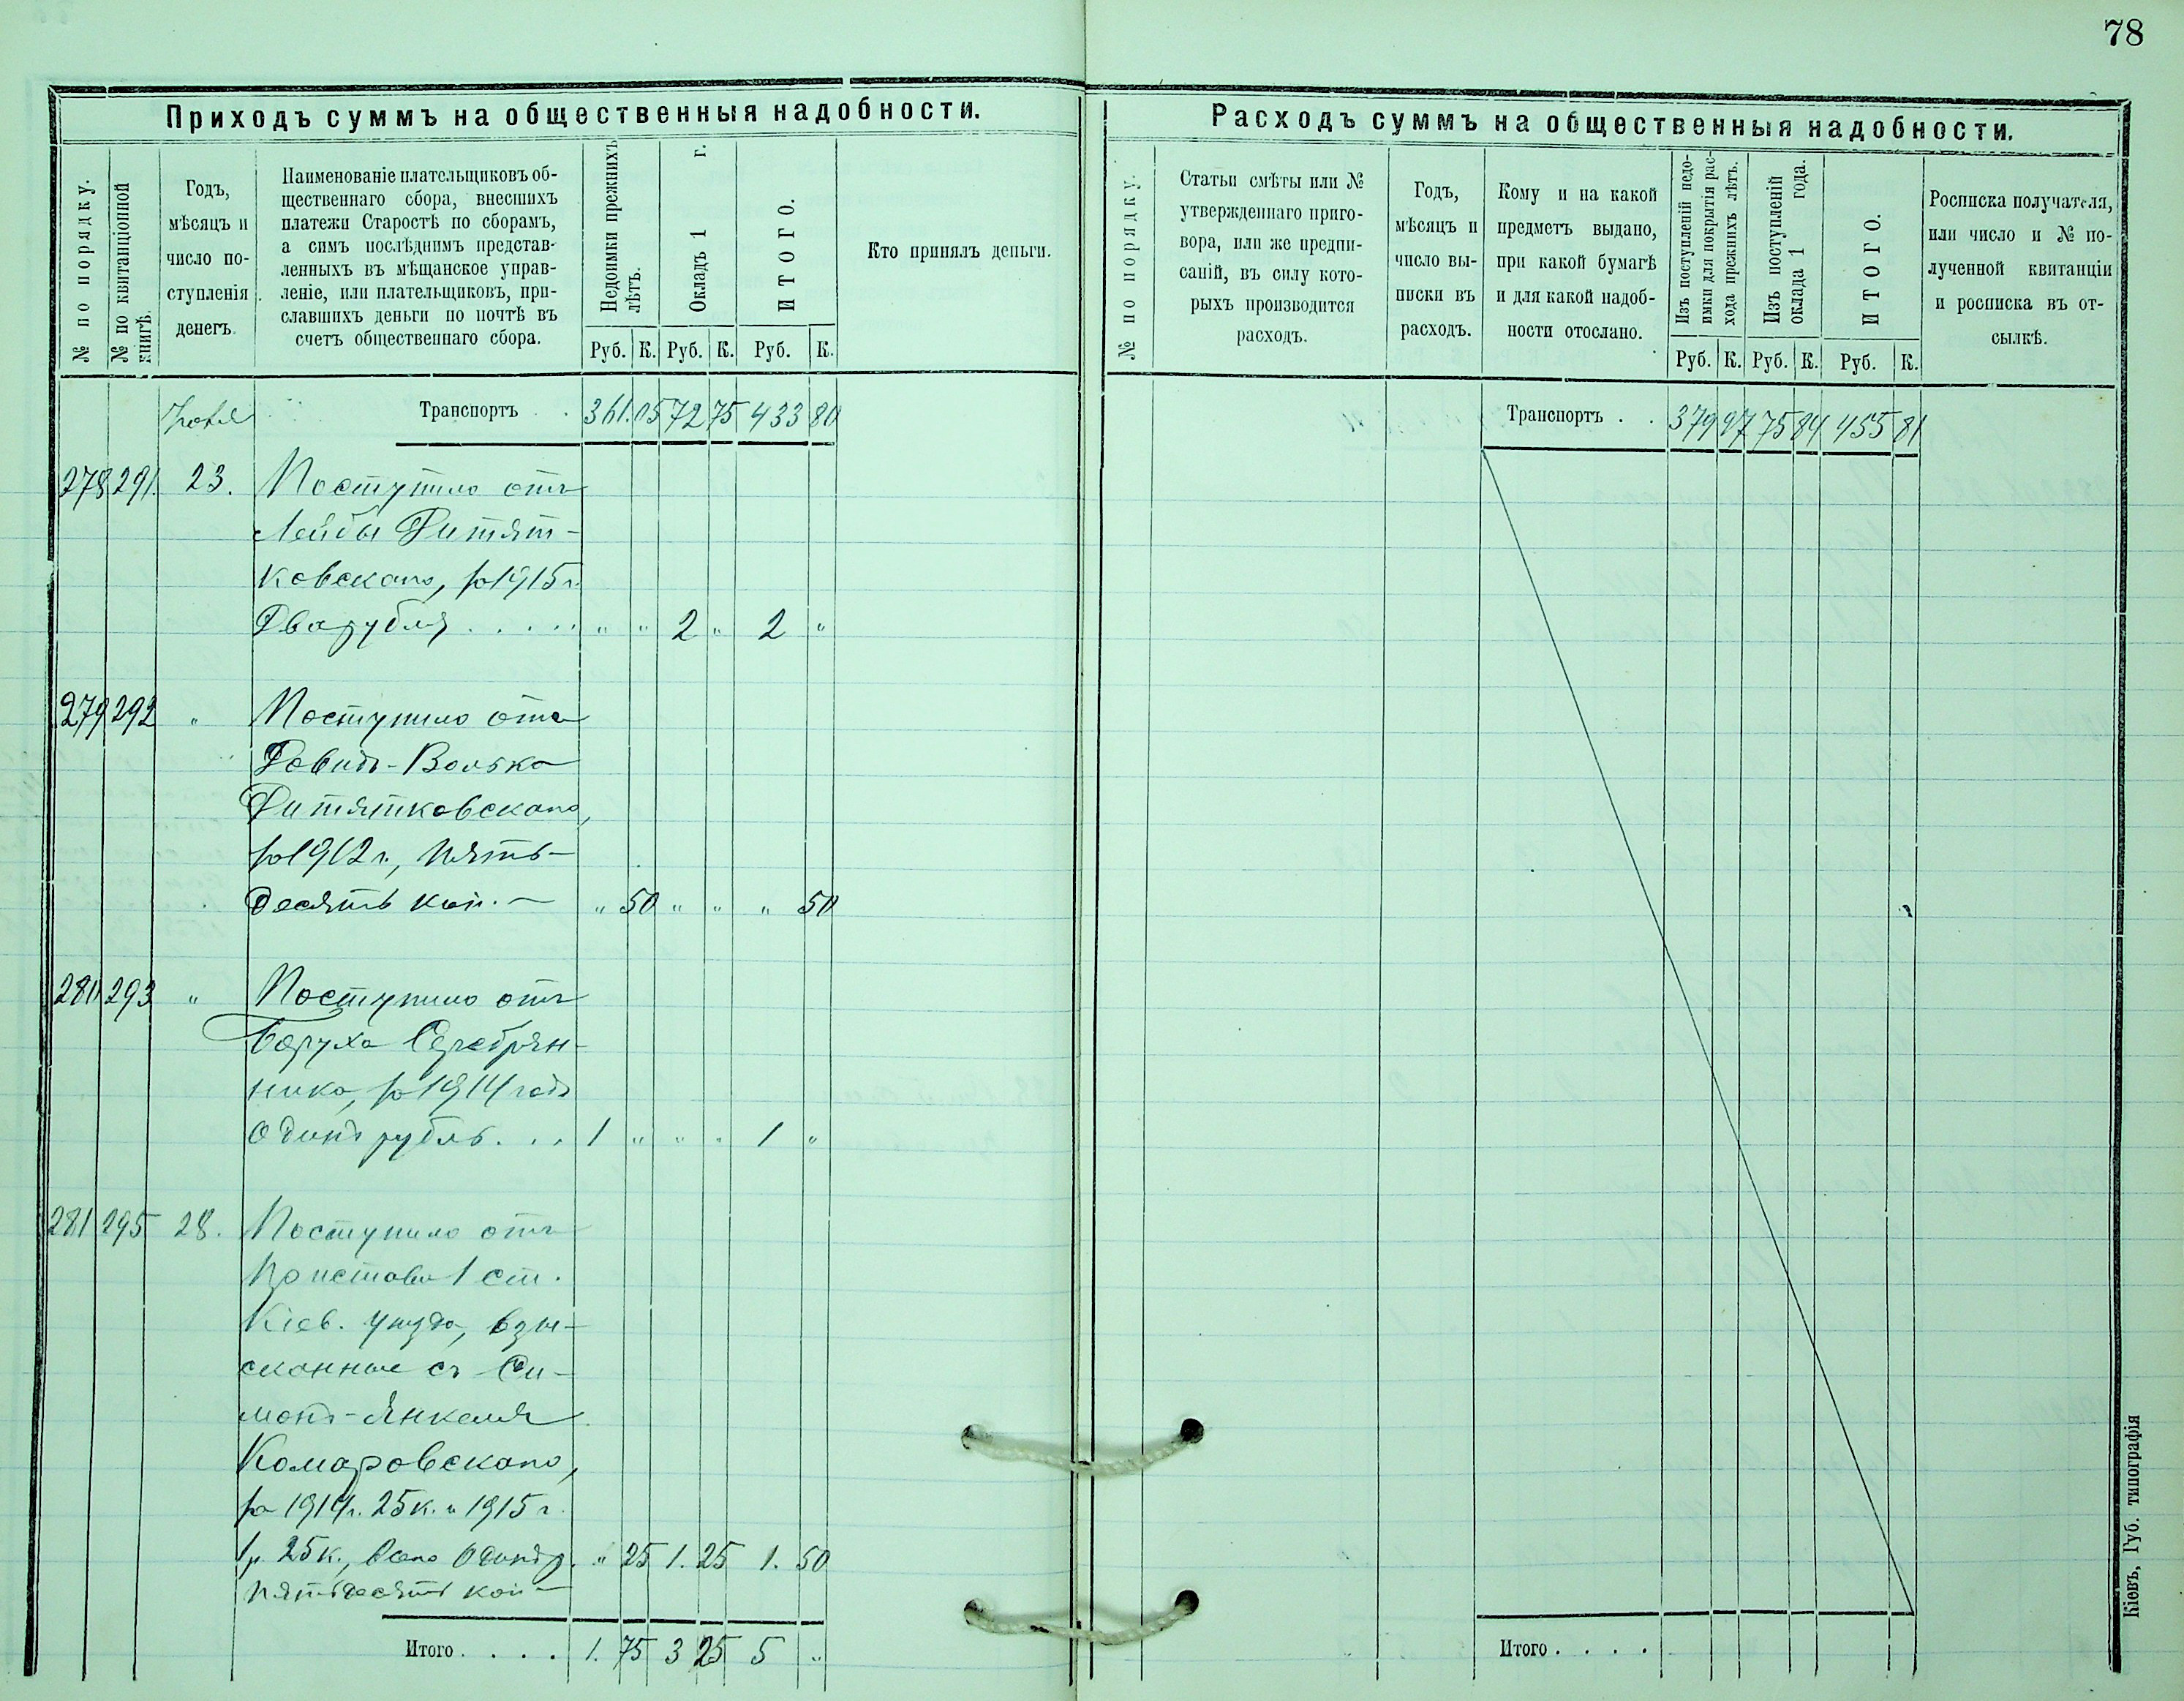 78
Приходъ суммъ на общественныя надобности.
№ по порядку.
№ по квитанціонной книгѣ.
Годъ,
мѣсяцъ и
число по-
ступленія
денегъ.
Наименованіе плательщиковъ об-
щественнаго сбора, внесшихъ
платежи Старостѣ по сборамъ,
а симъ послѣднимъ представ-
ленныхъ въ мѣщанское управ-
леніе, или плательщиковъ, при-
славшихъ деньги по почтѣ въ
счетъ общественнаго сбора.
Недоимки прежнихъ
лѣтъ.
Окладъ 1 г.
ИТОГО.
Кто принялъ деньги.
Руб. К. Руб. К. Руб. К.
Транспортъ . . 361. 05 72 75 433 80
278 291. 23. Поступило отъ
Лейбы Дитят-
ковскаго, за 1915 г.
Два рубля . . . . . " " 2 " 2 "
279 292 " Поступило отъ
Довидъ-Волька
Дитятковскаго,
за 1912 г., пять-
десятъ коп. — " 50 " " " 50
280 293 " Поступило отъ
Боруха Серебрян-
ника, за 1914 годъ
Одинъ рубль. . . 1 " " " 1 "
281 295 28. Поступило отъ
Пристава 1 ст.
Кіев. уѣзда, взы-
сканные съ Си-
монъ-Янкеля
Комаровскаго,
за 1914 г. 25 к. и 1915 г.
1 р. 25 к., всего Одинъ р. " 25 1. 25 1. 50
пятьдесятъ коп —
Итого. . . . 1. 75 3 25 5 "
Расходъ суммъ на общественныя надобности.
№ по порядку.
Статьи смѣты или №
утвержденнаго приго-
вора, или же предпи-
саній, въ силу кото-
рыхъ производится
расходъ.
Годъ,
мѣсяцъ и
число вы-
писки въ
расходъ.
Кому и на какой
предметъ выдано,
при какой бумагѣ
и для какой надоб-
ности отослано.
Изъ поступленій недо-
имки для покрытія рас-
хода прежнихъ лѣтъ.
Изъ поступленій
оклада 1 года.
ИТОГО.
Росписка получателя,
или число и № по-
лученной квитанціи
и росписка въ от-
сылкѣ.
Руб. К. Руб. К. Руб. К.
Транспортъ . . 379 97 75 84 455 81
Итого . . . .
Кіевъ, Губ. типографія